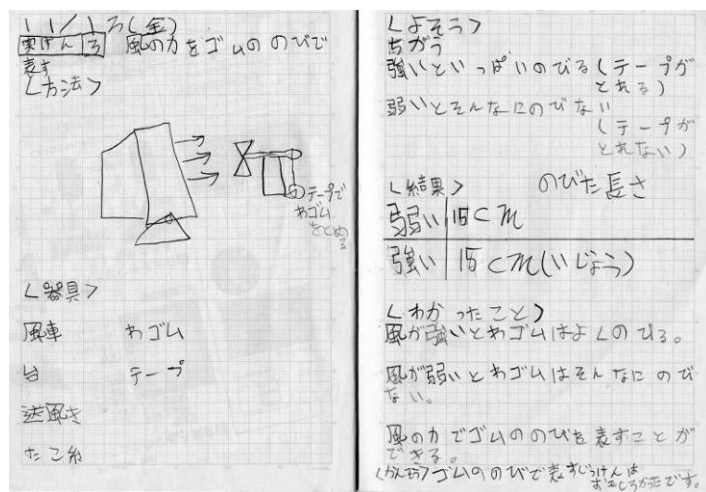 11/13(金)
実けん3 風の力をゴムの のびで
表す
<方法>
テープで
わゴム
をとめる
<器具>
風車 わゴム
台 テープ
送風き
たこ糸
<よそう>
ちがう
強いといっぱいのびる(テープが
とれる)
弱いとそんなにのびない
(テープが
とれない)
<結果> のびた長さ
弱い 15cm
強い 15cm(いじょう)
<わかったこと>
風が強いとわゴムはよくのびる。
風が弱いとわゴムはそんなに のび
ない。
風の力でゴムののびを表すことが
できる。
<かんそう>ゴムののびで表すじっけんは
おもしろかったです。